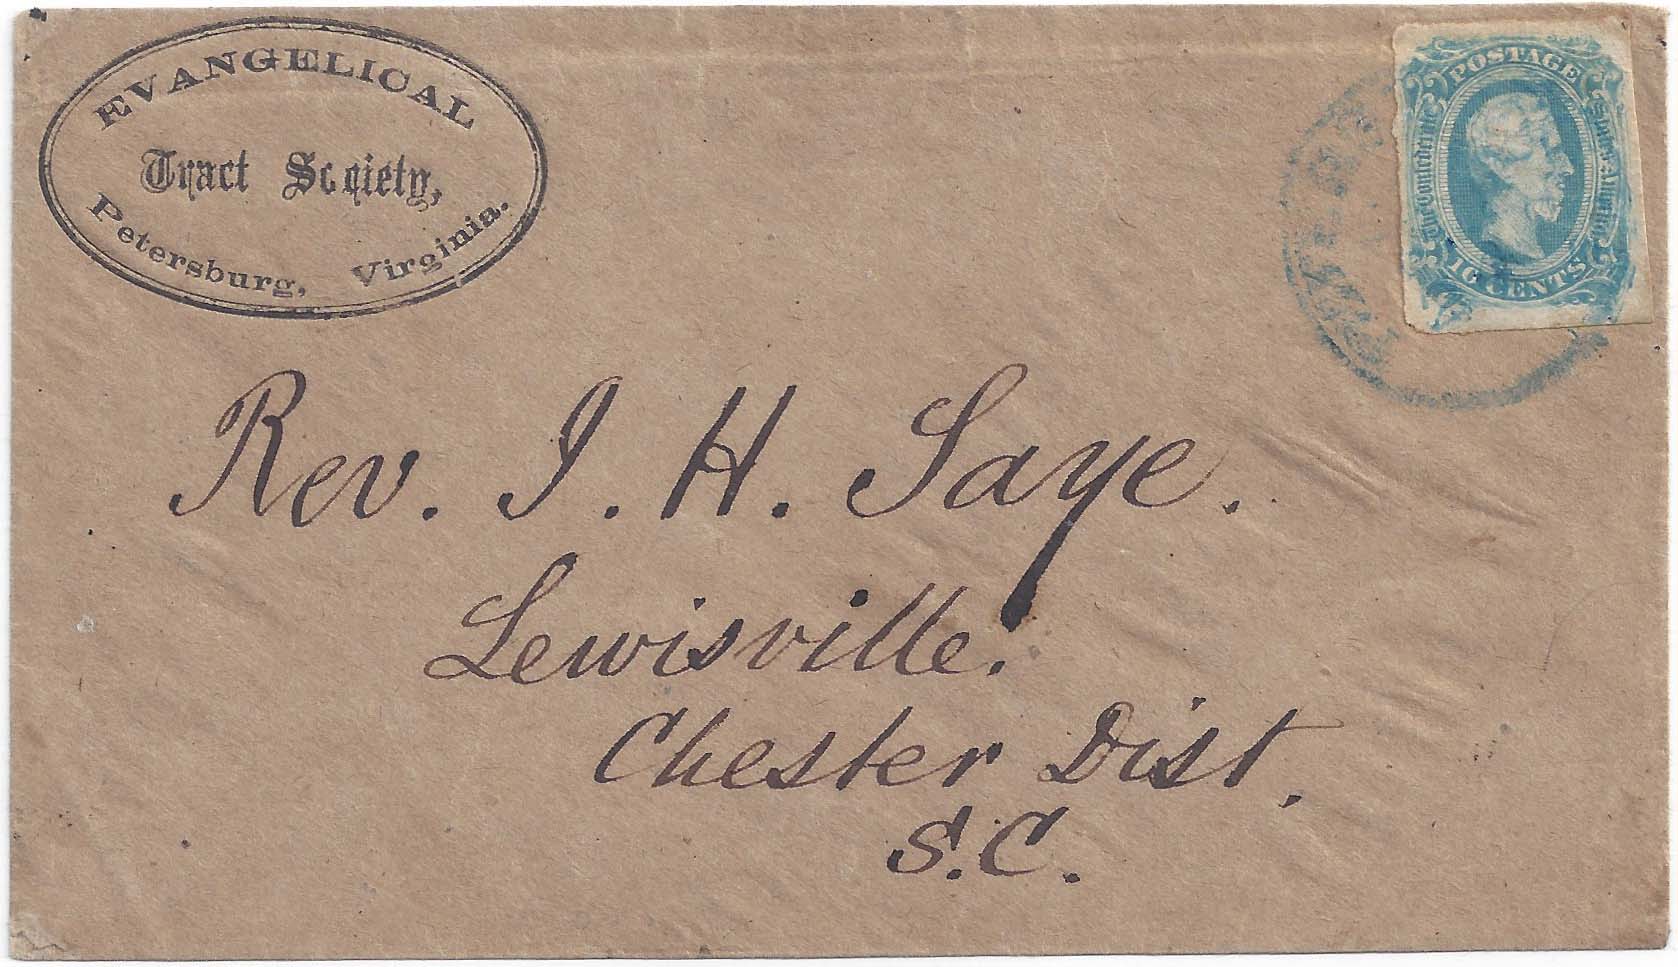 EVANGELICAL
Tract Society,
Petersburg, Virginia.
POSTAGE
The Confederate States of America
10 CENTS
Rev. J. H. Saye.
Lewisville.
Chester Dist,
S.C.